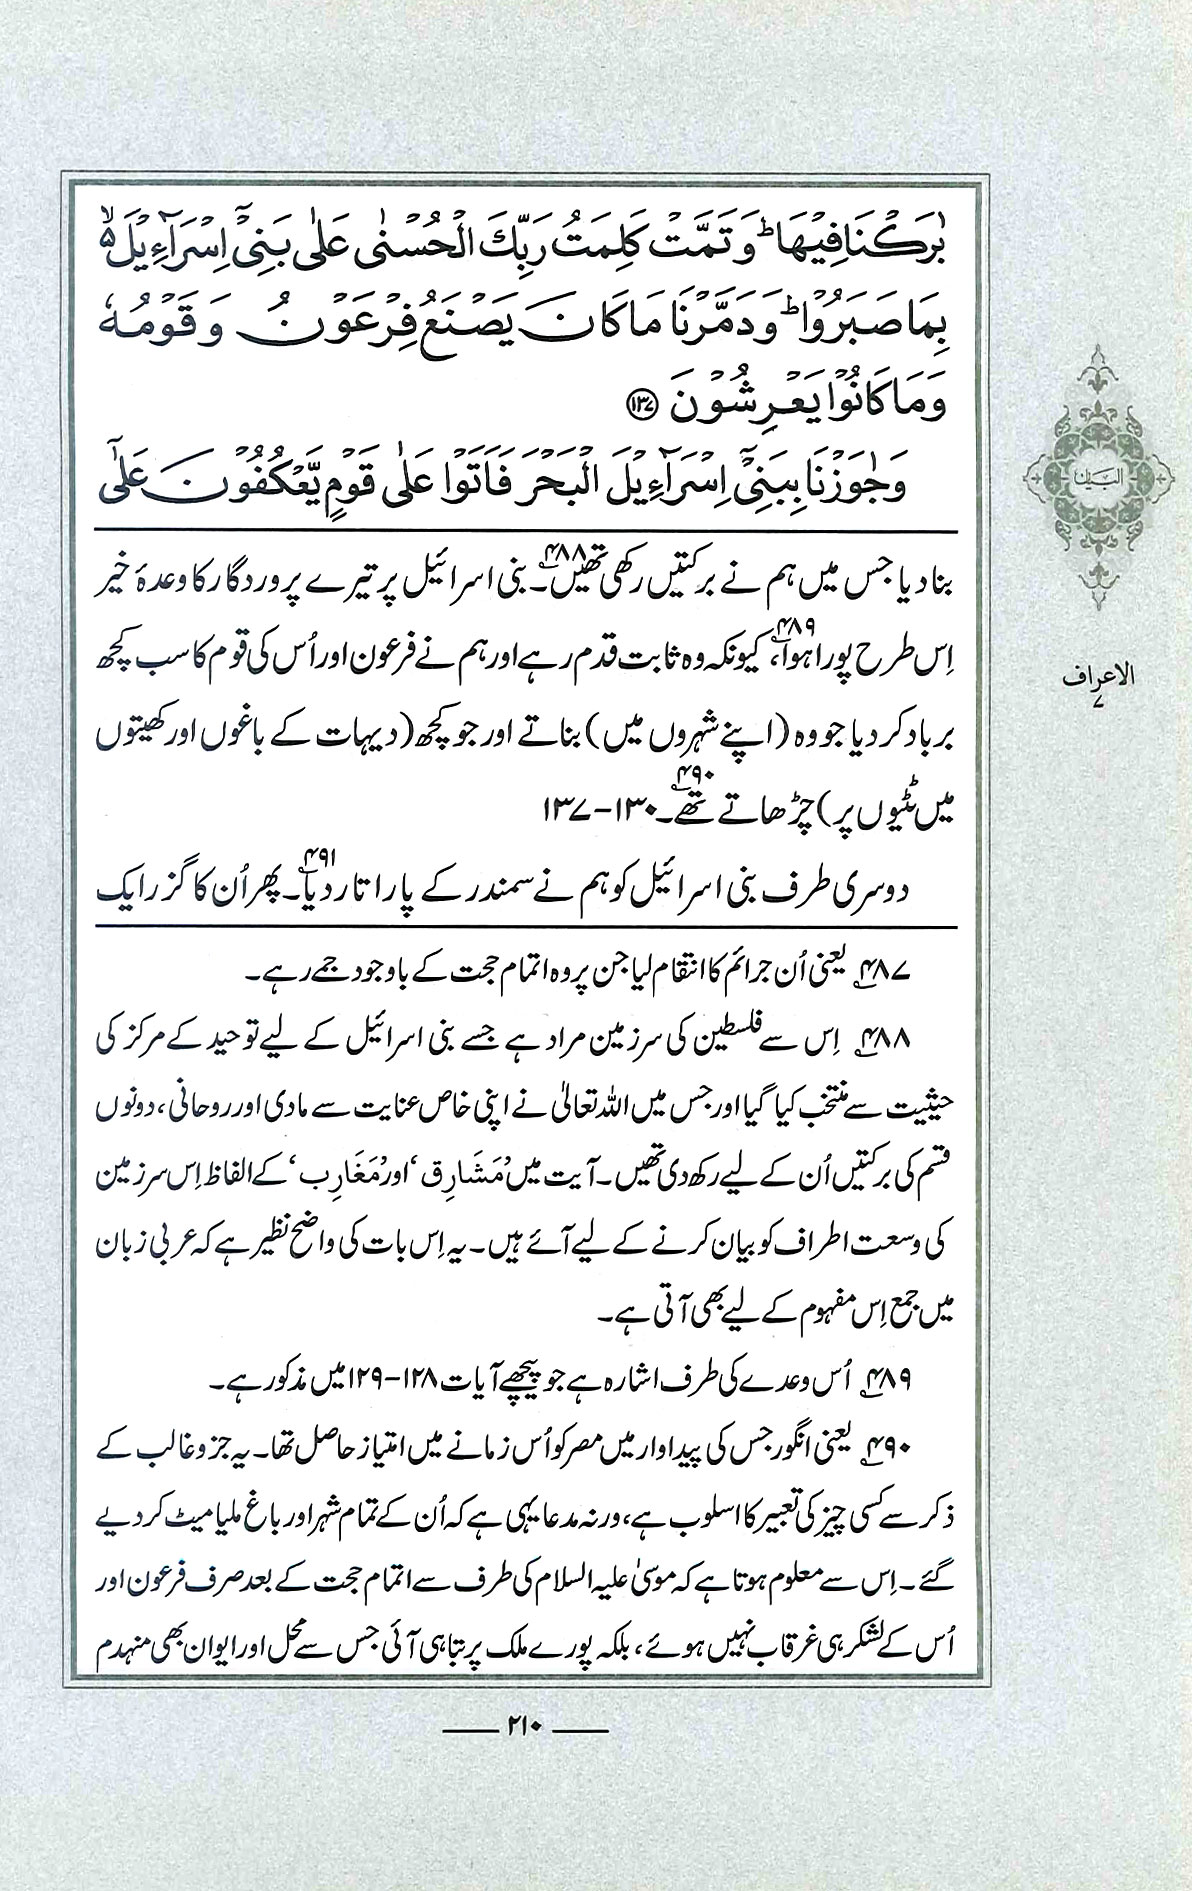 بٰرَكْنَا فِيْهَا ؕ وَ تَمَّتْ كَلِمَتُ رَبِّكَ الْحُسْنٰى عَلٰى بَنِيْٓ اِسْرَآءِيْلَ ۙ۬
بِمَا صَبَرُوْا ؕ وَ دَمَّرْنَا مَا كَانَ يَصْنَعُ فِرْعَوْنُ وَ قَوْمُهٗ
وَ مَا كَانُوْا يَعْرِشُوْنَ ۝۱۳۷
وَ جٰوَزْنَا بِبَنِيْٓ اِسْرَآءِيْلَ الْبَحْرَ فَاَتَوْا عَلٰى قَوْمٍ يَّعْكُفُوْنَ عَلٰٓى
بنا دیا جس میں ہم نے برکتیں رکھی تھیں۴۸۸۔ بنی اسرائیل پر تیرے پروردگار کا وعدۂ خیر
اِس طرح پورا ہوا۴۸۹، کیونکہ وہ ثابت قدم رہے اور ہم نے فرعون اور اُس کی قوم کا سب کچھ
برباد کر دیا جو وہ (اپنے شہروں میں) بناتے اور جو کچھ (دیہات کے باغوں اور کھیتوں
میں ٹٹیوں پر) چڑھاتے تھے۴۹۰۔ ۱۳۰-۱۳۷
دوسری طرف بنی اسرائیل کو ہم نے سمندر کے پار اتار دیا۴۹۱۔ پھر اُن کا گزر ایک
۴۸۷؎ یعنی اُن جرائم کا انتقام لیا جن پر وہ اتمام حجت کے باوجود جمے رہے۔
۴۸۸؎ اِس سے فلسطین کی سرزمین مراد ہے جسے بنی اسرائیل کے لیے توحید کے مرکز کی
حیثیت سے منتخب کیا گیا اور جس میں اللہ تعالیٰ نے اپنی خاص عنایت سے مادی اور روحانی، دونوں
قسم کی برکتیں اُن کے لیے رکھ دی تھیں۔ آیت میں ’مَشَارِق‘ اور ’مَغَارِب‘ کے الفاظ اِس سرزمین
کی وسعت اطراف کو بیان کرنے کے لیے آئے ہیں۔ یہ اِس بات کی واضح نظیر ہے کہ عربی زبان
میں جمع اِس مفہوم کے لیے بھی آتی ہے۔
۴۸۹؎ اُس وعدے کی طرف اشارہ ہے جو پیچھے آیات ۱۲۸-۱۲۹ میں مذکور ہے۔
۴۹۰؎ یعنی انگور جس کی پیداوار میں مصر کو اُس زمانے میں امتیاز حاصل تھا۔ یہ جزو غالب کے
ذکر سے کسی چیز کی تعبیر کا اسلوب ہے، ورنہ مدعا یہی ہے کہ اُن کے تمام شہر اور باغ ملیامیٹ کر دیے
گئے۔ اِس سے معلوم ہوتا ہے کہ موسیٰ علیہ السلام کی طرف سے اتمام حجت کے بعد صرف فرعون اور
اُس کے لشکر ہی غرقاب نہیں ہوئے، بلکہ پورے ملک پر تباہی آئی جس سے محل اور ایوان بھی منہدم
۲۱۰
البیان
الاعراف
۷